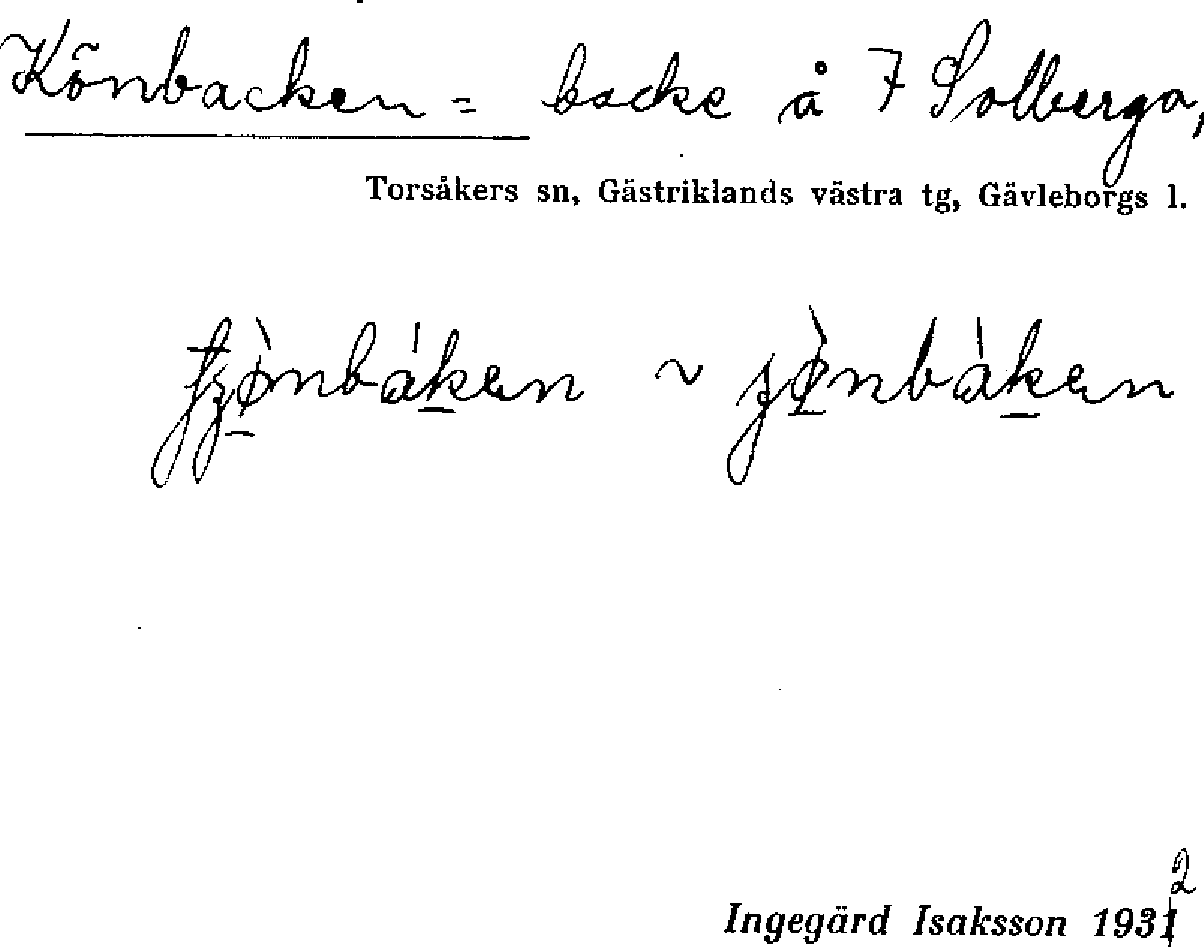 Könbacken = backe å 7 Solberga,
Torsåkers sn, Gästriklands västra tg, Gävleborgs l.
~
Ingegärd Isaksson 1932